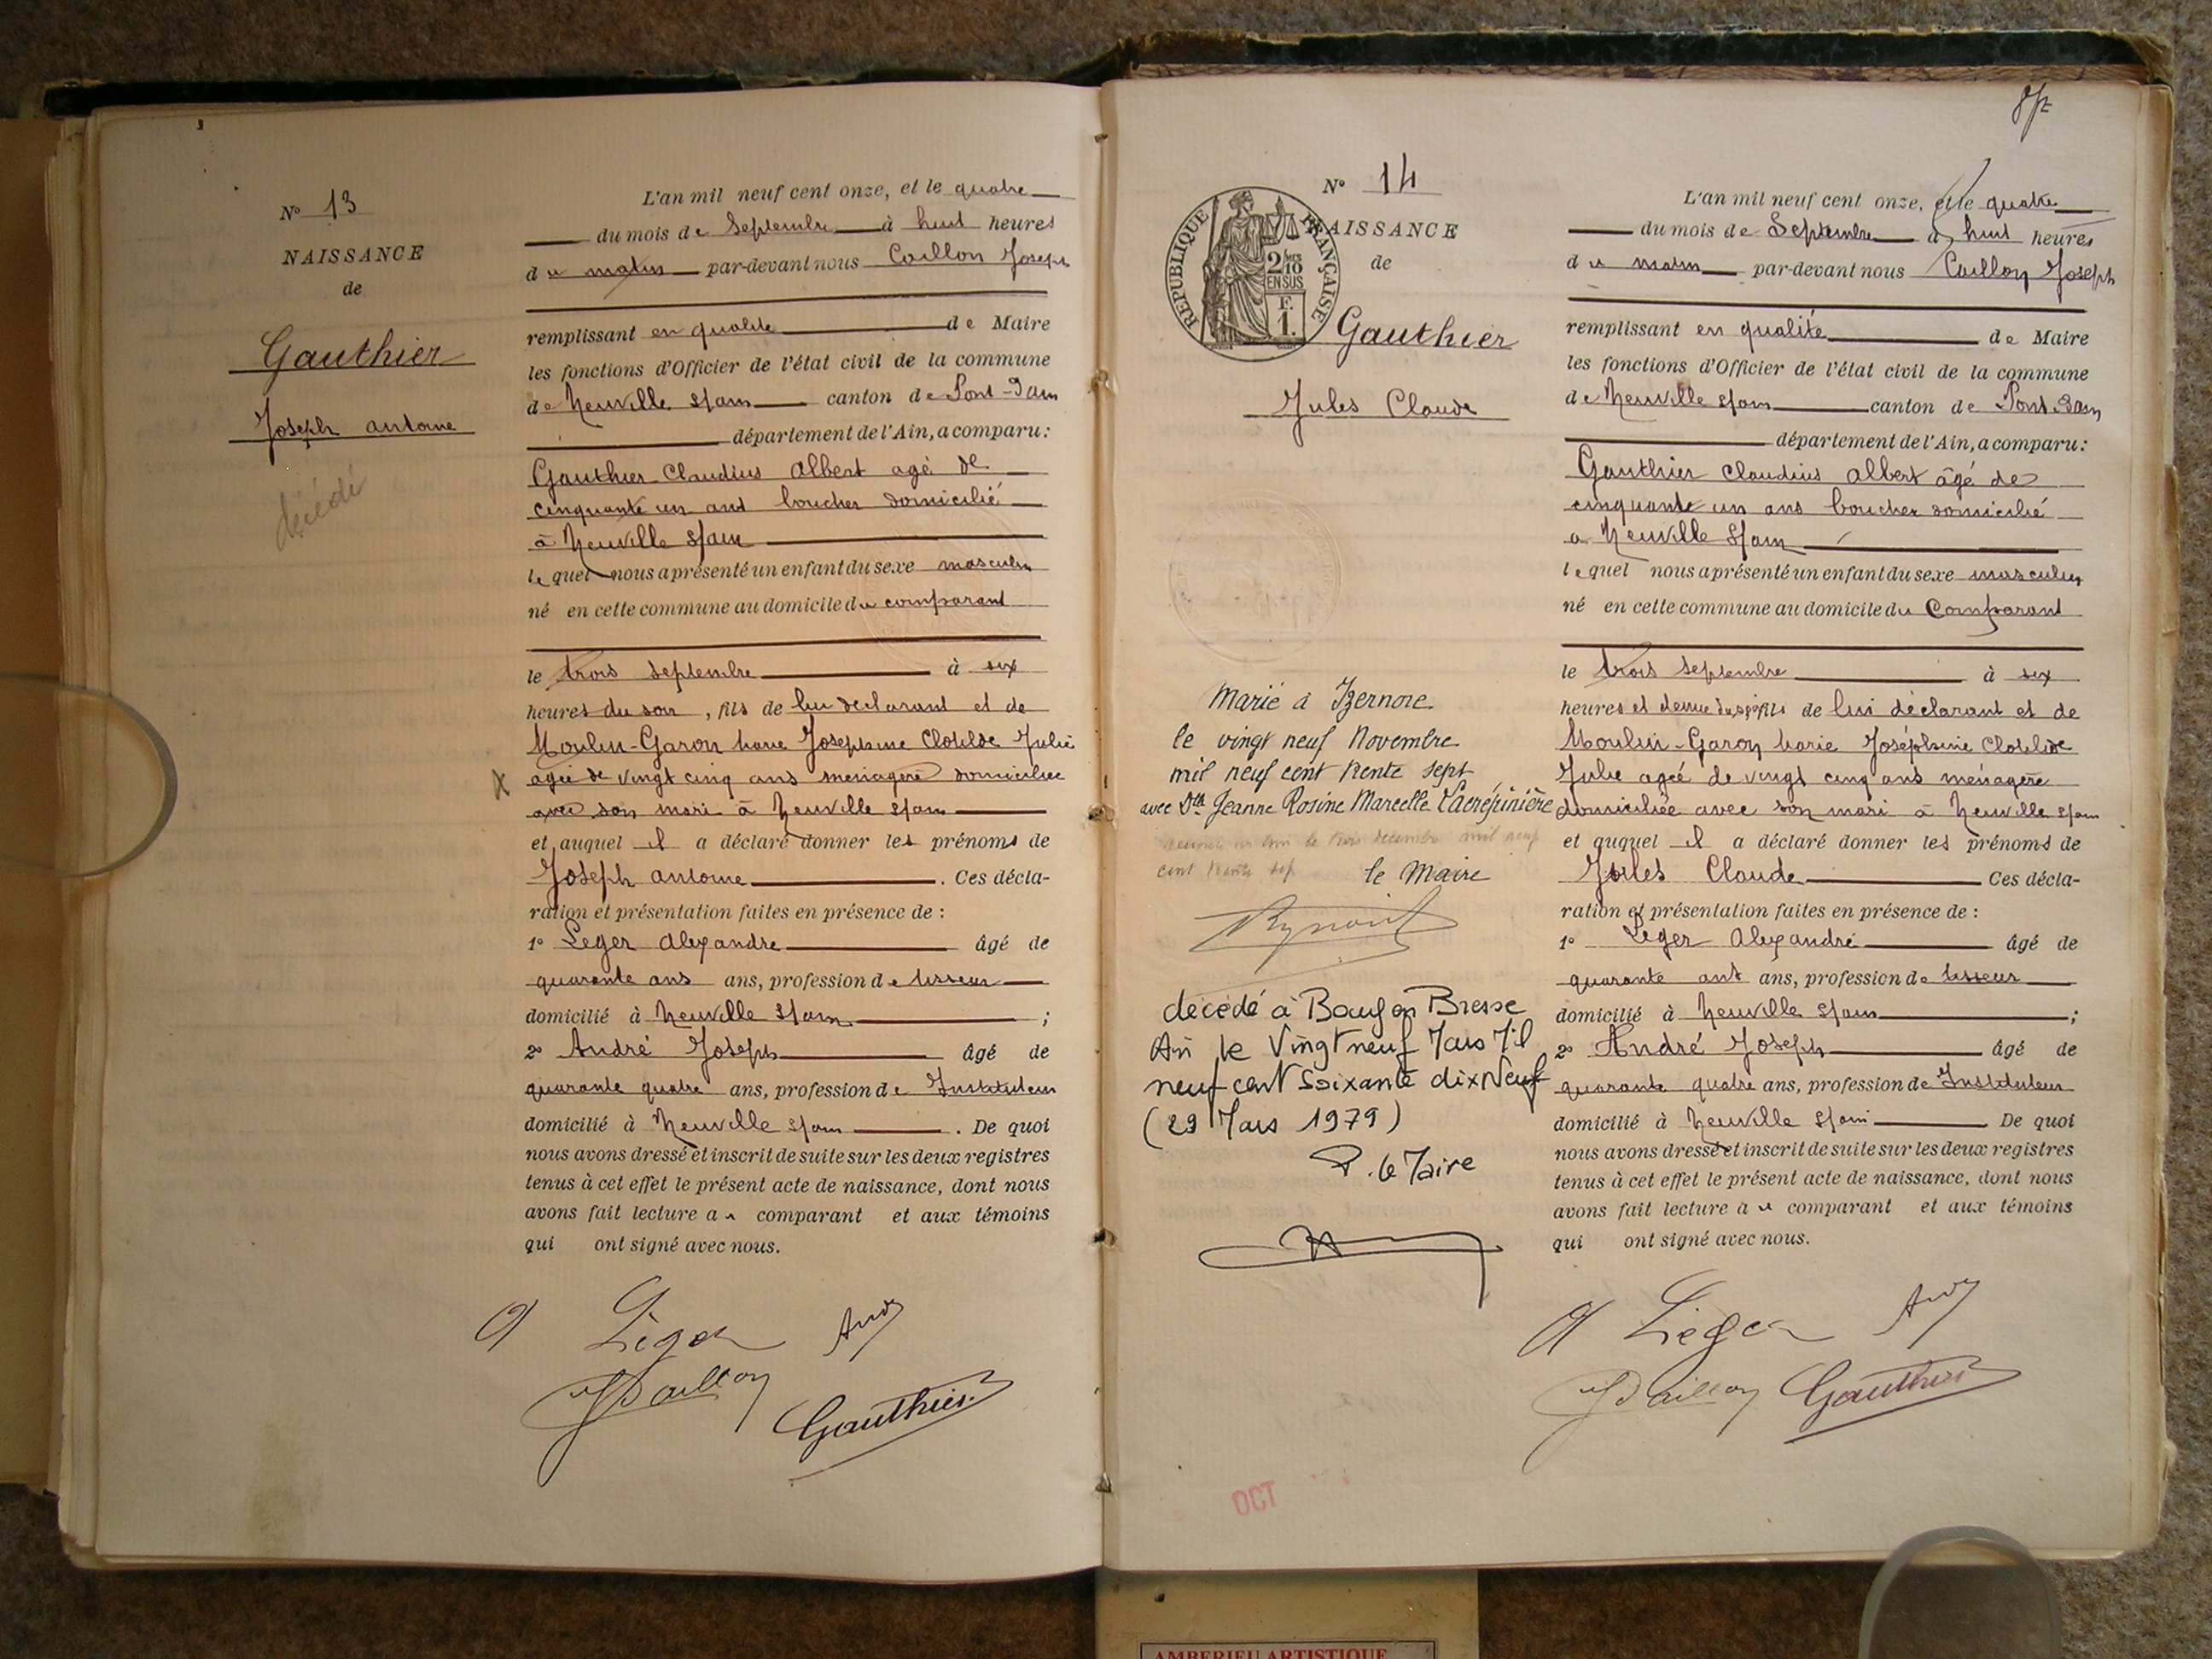 N° 13
NAISSANCE
de
Gauthier
Joseph antoine
décédé
L'an mil neuf cent onze, et le quatre
du mois de Septembre à huit heures
du matin par-devant nous Caillon Joseph
remplissant en qualité de Maire
les fonctions d'Officier de l'état civil de la commune
de Neuville s/ain canton de Pont-d'ain
département de l'Ain, a comparu :
Gauthier Claudius Albert agé de
cinquante un ans boucher domicilié
à Neuville s/ain
lequel nous a présenté un enfant du sexe masculin
né en cette commune au domicile du comparant
le trois septembre à six
heures du soir, fils de lui déclarant et de
Moulin-Garon Marie Josephine Clotilde Julie
agée de vingt cinq ans ménagère domiciliée
avec son mari à Neuville s/ain
et auquel il a déclaré donner les prénoms de
Joseph antoine. Ces décla-
ration et présentation faites en présence de :
1° Leger Alexandre âgé de
quarante ans ans, profession de tisseur
domicilié à Neuville s/ain ;
2° André Joseph âgé de
quarante quatre ans, profession de Instituteur
domicilié à Neuville s/ain. De quoi
nous avons dressé et inscrit de suite sur les deux registres
tenus à cet effet le présent acte de naissance, dont nous
avons fait lecture au comparant et aux témoins
qui ont signé avec nous.
A Léger
Caillon
Gauthier
N° 14
NAISSANCE
de
REPUBLIQUE FRANÇAISE
2/10
EN SUS
F.
1.
Gauthier
Jules Claude
Marié à Izernore
le vingt neuf Novembre
mil neuf cent trente sept
avec Dlle Jeanne Rosine Marcelle Lacrépinière
le trois décembre mil neuf
cent trente sept
le Maire
décédé à Bourg en Bresse
Ain le Vingt neuf Mars Mil
neuf cent Soixante dix Neuf
(29 Mars 1979)
P. le Maire
OCT
L'an mil neuf cent onze, et le quatre
du mois de Septembre à huit heures
du matin par-devant nous Caillon Joseph
remplissant en qualité de Maire
les fonctions d'Officier de l'état civil de la commune
de Neuville s/ain canton de Pont d'ain
département de l'Ain, a comparu :
Gauthier Claudius Albert âgé de
cinquante un ans boucher domicilié
a Neuville s/ain
lequel nous a présenté un enfant du sexe masculin
né en cette commune au domicile du Comparant
le trois septembre à six
heures et demie du soir fils de lui déclarant et de
Moulin-Garon Marie Joséphine Clotilde
Julie agée de vingt cinq ans ménagère
domiciliée avec son mari à Neuville s/ain
et auquel il a déclaré donner les prénoms de
Jules Claude Ces décla-
ration et présentation faites en présence de :
1° Leger Alexandre âgé de
quarante ans ans, profession de tisseur
domicilié à Neuville s/ain ;
2° André Joseph âgé de
quarante quatre ans, profession de Instituteur
domicilié à Neuville s/ain De quoi
nous avons dressé et inscrit de suite sur les deux registres
tenus à cet effet le présent acte de naissance, dont nous
avons fait lecture au comparant et aux témoins
qui ont signé avec nous.
A Léger
Caillon Gauthier
AMBERIEU ARTISTIQUE